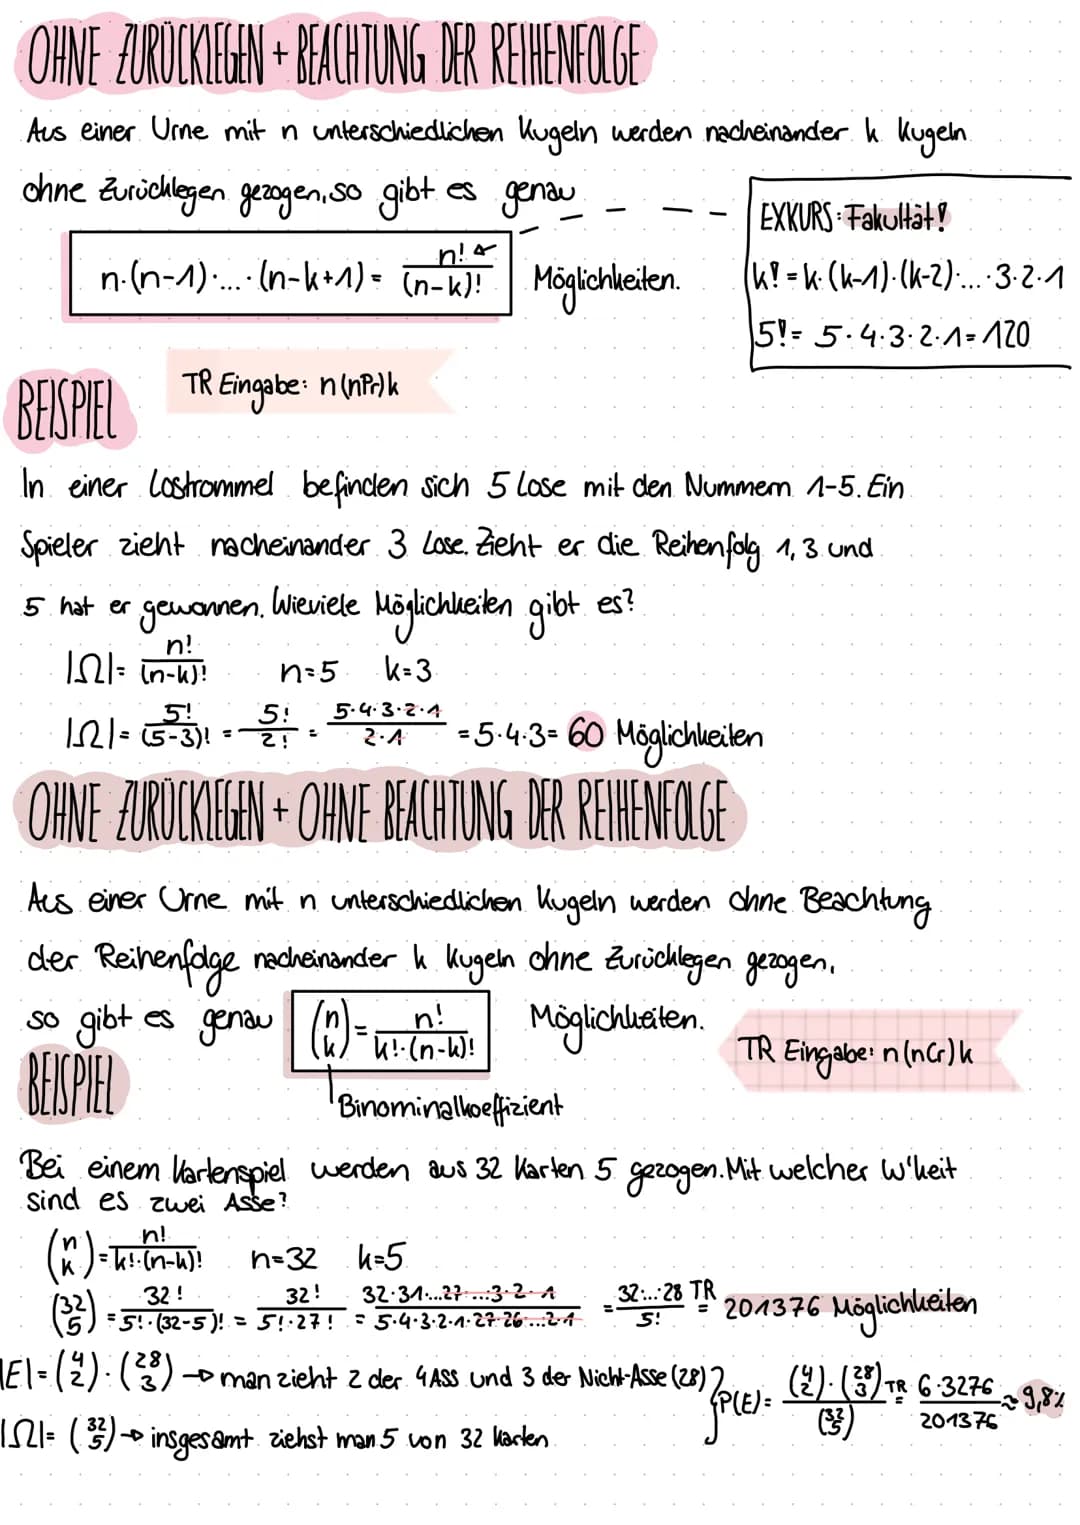 OHNE ZURÜCKLEGEN + BEACHTUNG DER REIHENFOLGE
Aus einer Urne mit n unterschiedlichen Kugeln werden nacheinander k Kugeln
ohne Zurücklegen gezogen, so gibt es genau
n·(n-1)·...·(n-k+1) = n!/(n-k)! Möglichkeiten.
EXKURS: Fakultät!
k! = k·(k-1)·(k-2)·...·3·2·1
5! = 5·4·3·2·1 = 120
TR Eingabe: n (nPr) k
BEISPIEL
In einer Lostrommel befinden sich 5 Lose mit den Nummern 1-5. Ein
Spieler zieht nacheinander 3 Lose. Zieht er die Reihenfolg 1, 3 und
5 hat er gewonnen. Wieviele Möglichkeiten gibt es?
|Ω| = n!/(n-k)! n=5 k=3
|Ω| = 5!/(5-3)! = 5!/2! = 5·4·3·2·1/2·1 = 5·4·3 = 60 Möglichkeiten
OHNE ZURÜCKLEGEN + OHNE BEACHTUNG DER REIHENFOLGE
Aus einer Urne mit n unterschiedlichen Kugeln werden ohne Beachtung
der Reihenfolge nacheinander k Kugeln ohne Zurücklegen gezogen,
so gibt es genau (n k) = n!/k!·(n-k)! Möglichkeiten.
TR Eingabe: n (nCr) k
BEISPIEL
Binominalkoeffizient
Bei einem Kartenspiel werden aus 32 Karten 5 gezogen. Mit welcher W'keit
sind es zwei Asse?
(n k) = n!/k!·(n-k)! n=32 k=5
(32 5) = 32!/5!·(32-5)! = 32!/5!·27! = 32·31·...27·...·3·2·1/5·4·3·2·1·27·26·...·2·1 = 32·...·28/5! TR = 201376 Möglichkeiten
|E| = (4 2)·(28 3) → man zieht 2 der 4 ASS und 3 der Nicht-Asse (28)
|Ω| = (32 5) → insgesamt ziehst man 5 von 32 Karten
P(E) = (4 2)·(28 3)/(32 5) TR = 6·3276/201376 ≈ 9,8%